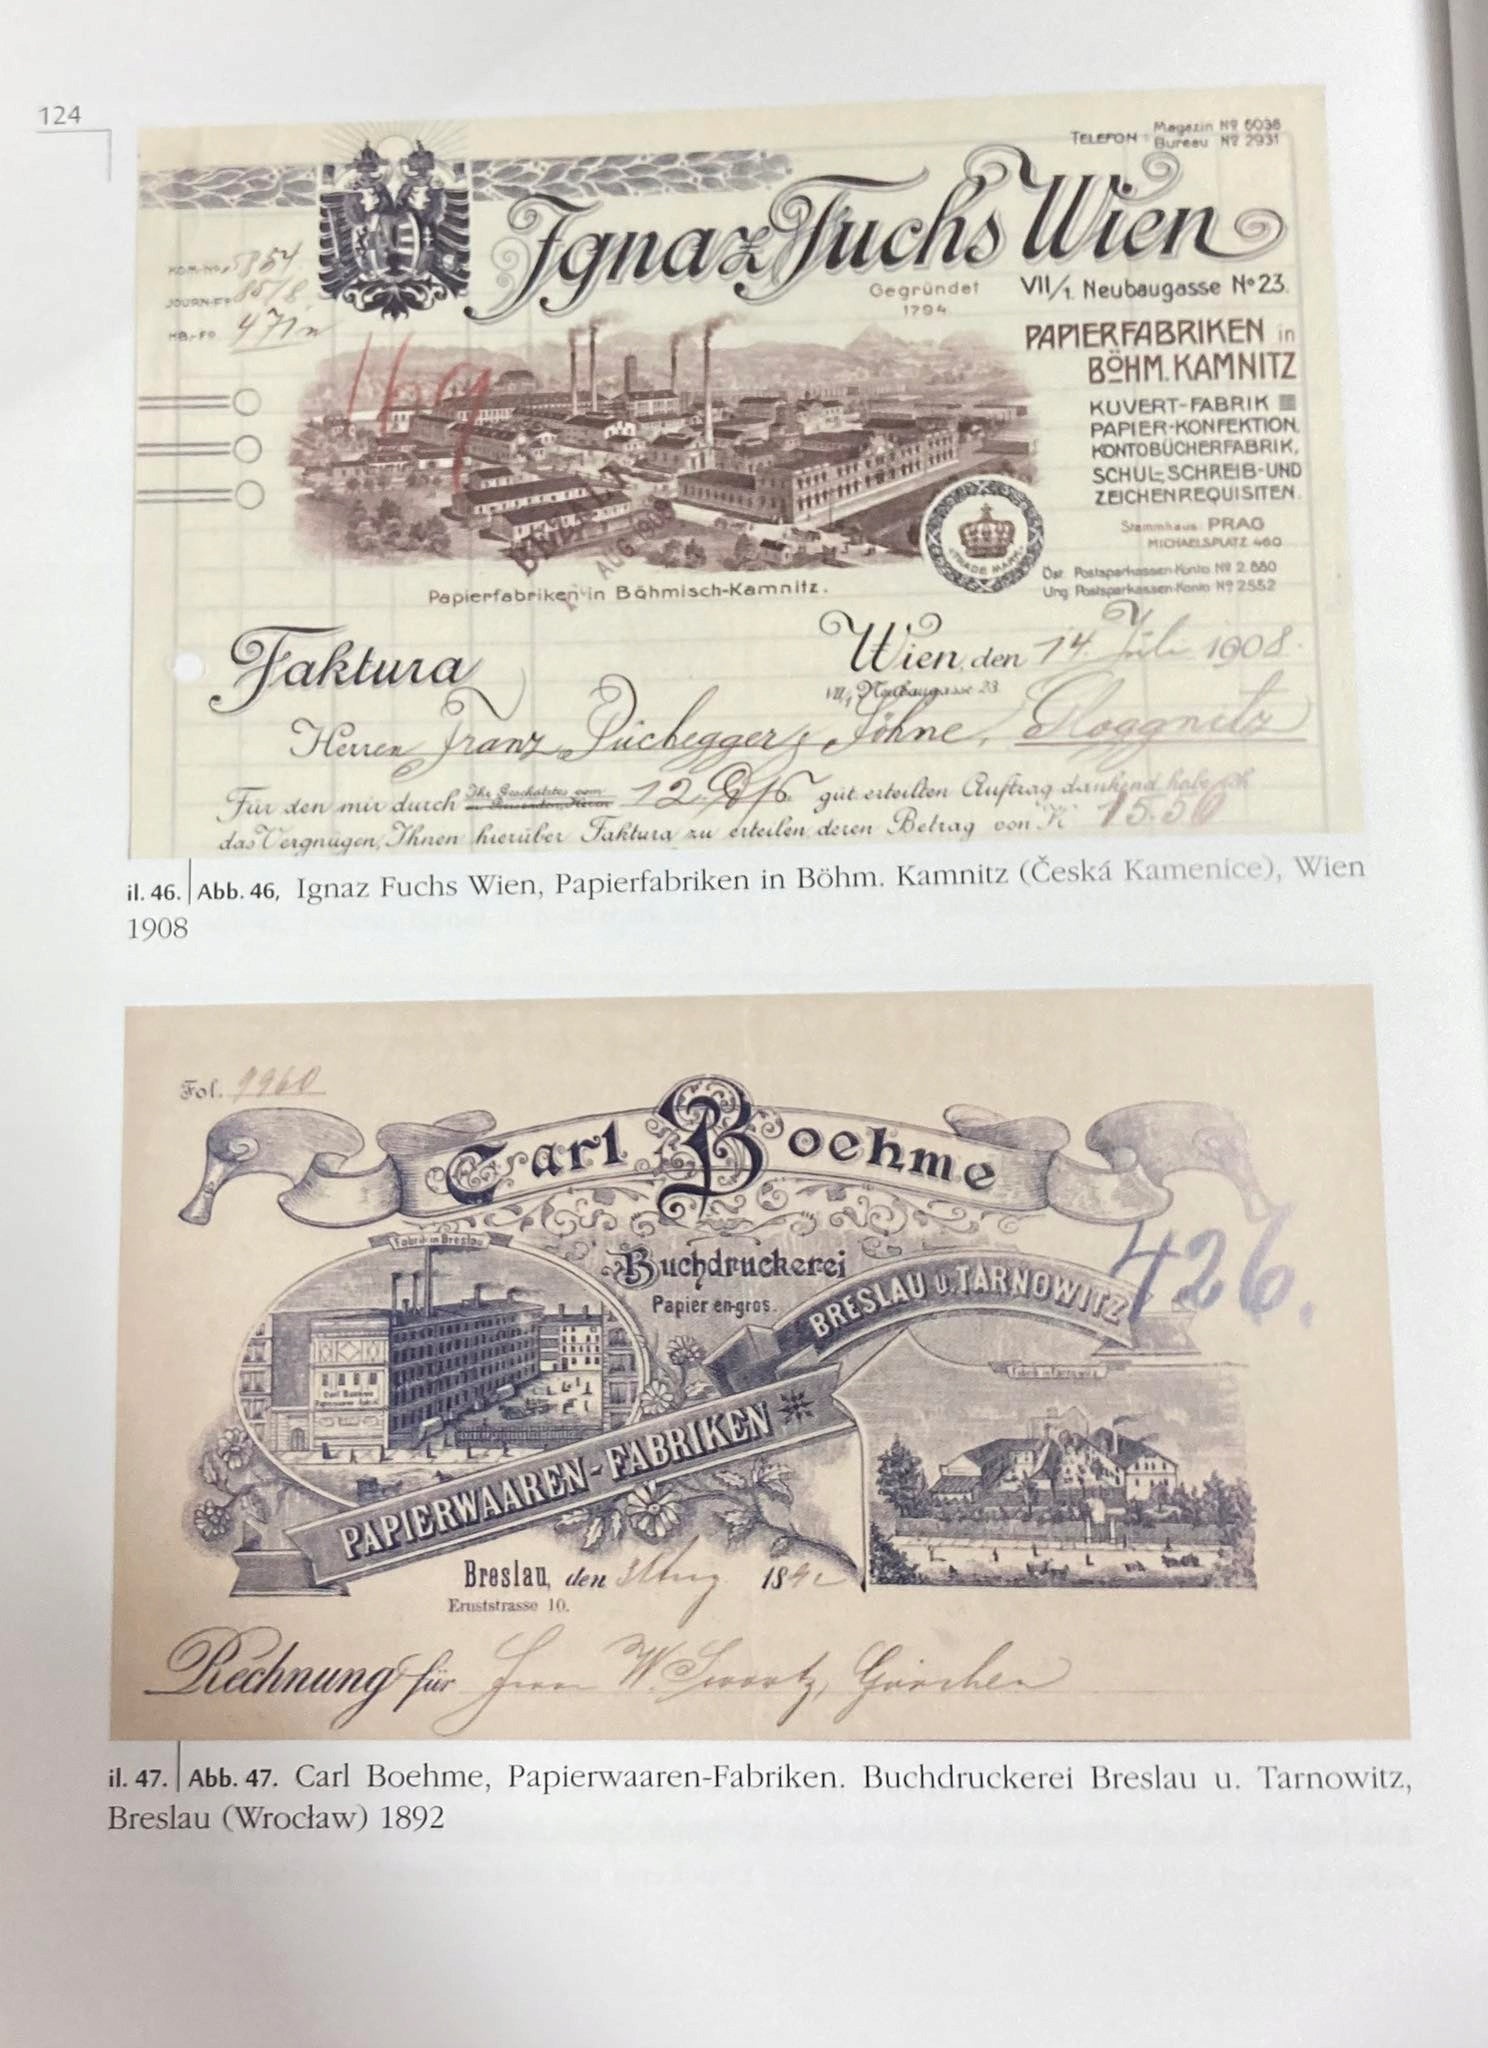 124
TELEFON Magazin Nº 6038
Bureau Nº 2931
Ignaz Fuchs Wien
Gegründet
1794
VII/1. Neubaugasse Nº 23.
KOM.-No. 5854
JOURN.-Fº 85/8
HB.-Fº 471
169
PAPIERFABRIKEN in
BÖHM. KAMNITZ
KUVERT-FABRIK
PAPIER-KONFEKTION,
KONTOBÜCHERFABRIK,
SCHUL-, SCHREIB- UND
ZEICHENREQUISITEN.
Stammhaus: PRAG
MICHAELSPLATZ 460
Öst. Postsparkassen-Konto Nº 2.880
Ung. Postsparkassen-Konto Nº 2552
TRADE MARK
AUG. 190
Papierfabriken in Böhmisch-Kamnitz.
Faktura
Wien, den 14. Juli 1908.
VII/1 Neubaugasse 23
Herren Franz Püchegger Söhne, Gloggnitz
Für den mir durch Ihr Geschätztes vom 12. gut erteilten Auftrag dankend habe ich
das Vergnügen, Ihnen hierüber Faktura zu erteilen, deren Betrag von K 15.50
il. 46. | Abb. 46, Ignaz Fuchs Wien, Papierfabriken in Böhm. Kamnitz (Česká Kamenice), Wien
1908
Fol. 9960
Carl Boehme
Fabrik in Breslau
Buchdruckerei
Papier en-gros.
BRESLAU u. TARNOWITZ
426.
Fabrik in Tarnowitz
Carl Boehme
PAPIERWAAREN-FABRIKEN
Breslau, den 31 Aug 1892
Ernststrasse 10.
Rechnung für Herrn W.
il. 47. | Abb. 47. Carl Boehme, Papierwaaren-Fabriken. Buchdruckerei Breslau u. Tarnowitz,
Breslau (Wrocław) 1892